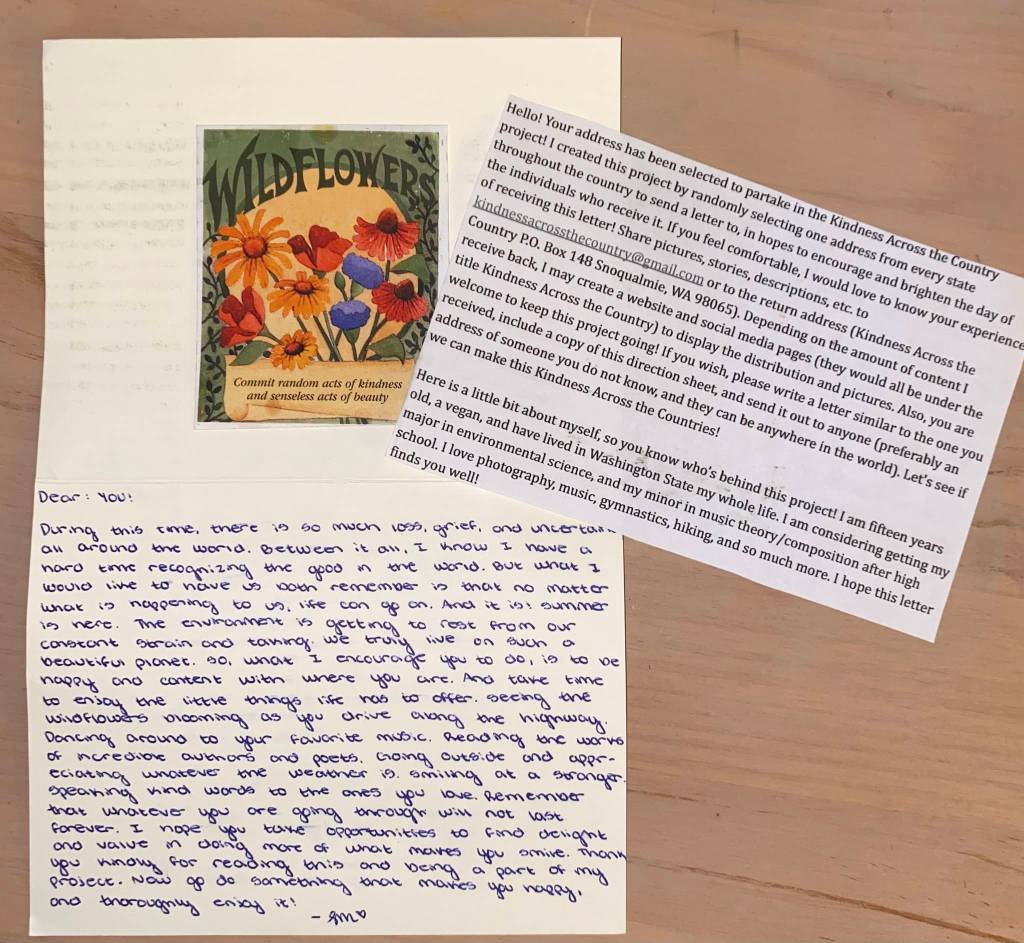 WILDFLOWERS
Commit random acts of kindness
and senseless acts of beauty
Hello! Your address has been selected to partake in the Kindness Across the Country
project! I created this project by randomly selecting one address from every state
throughout the country to send a letter to, in hopes to encourage and brighten the day of
the individuals who receive it. If you feel comfortable, I would love to know your experience
of receiving this letter! Share pictures, stories, descriptions, etc. to
kindnessacrossthecountry@gmail.com or to the return address (Kindness Across the
Country P.O. Box 148 Snoqualmie, WA 98065). Depending on the amount of content I
receive back, I may create a website and social media pages (they would all be under the
title Kindness Across the Country) to display the distribution and pictures. Also, you are
welcome to keep this project going! If you wish, please write a letter similar to the one you
received, include a copy of this direction sheet, and send it out to anyone (preferably an
address of someone you do not know, and they can be anywhere in the world). Let's see if
we can make this Kindness Across the Countries!
Here is a little bit about myself, so you know who's behind this project! I am fifteen years
old, a vegan, and have lived in Washington State my whole life. I am considering getting my
major in environmental science, and my minor in music theory/composition after high
school. I love photography, music, gymnastics, hiking, and so much more. I hope this letter
finds you well!
Dear: You!
During this time, there is so much loss, grief, and uncertain
all around the world. Between it all, I know I have a
hard time recognizing the good in the world. But what I
would like to have us both remember is that no matter
what is happening to us, life can go on. And it is! Summer
is here. The environment is getting to rest from our
constant strain and taking. We truly live on such a
beautiful planet. So, what I encourage you to do, is to be
happy and content with where you are. And take time
to enjoy the little things life has to offer. Seeing the
wildflowers blooming as you drive along the highway.
Dancing around to your favorite music. Reading the works
of incredible authors and poets. Going outside and appr-
eciating whatever the weather is. Smiling at a stranger.
Speaking kind words to the ones you love. Remember
that whatever you are going through will not last
forever. I hope you take opportunities to find delight
and value in doing more of what makes you smile. Thank
you kindly for reading this and being a part of my
project. Now go do something that makes you happy,
and thoroughly enjoy it!